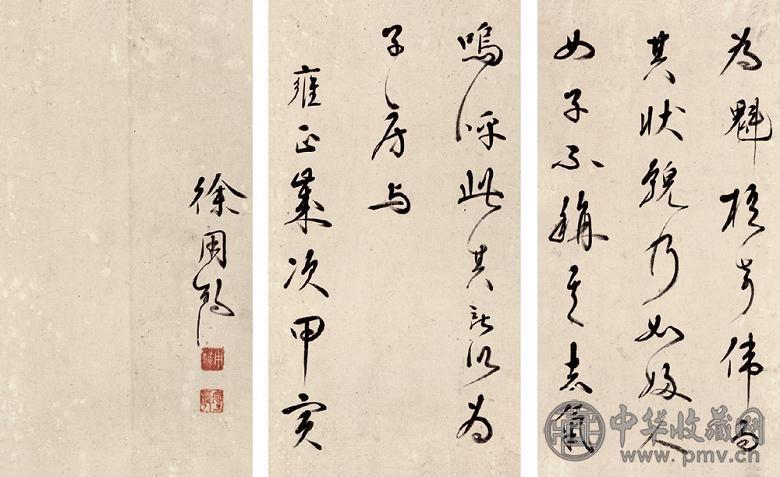 為魁梧奇偉而
其狀貌乃如婦人
女子不稱其志氣
嗚呼此其所以為
子房与
雍正歲次甲寅
徐用錫
中华收藏网
www.pmv.cn